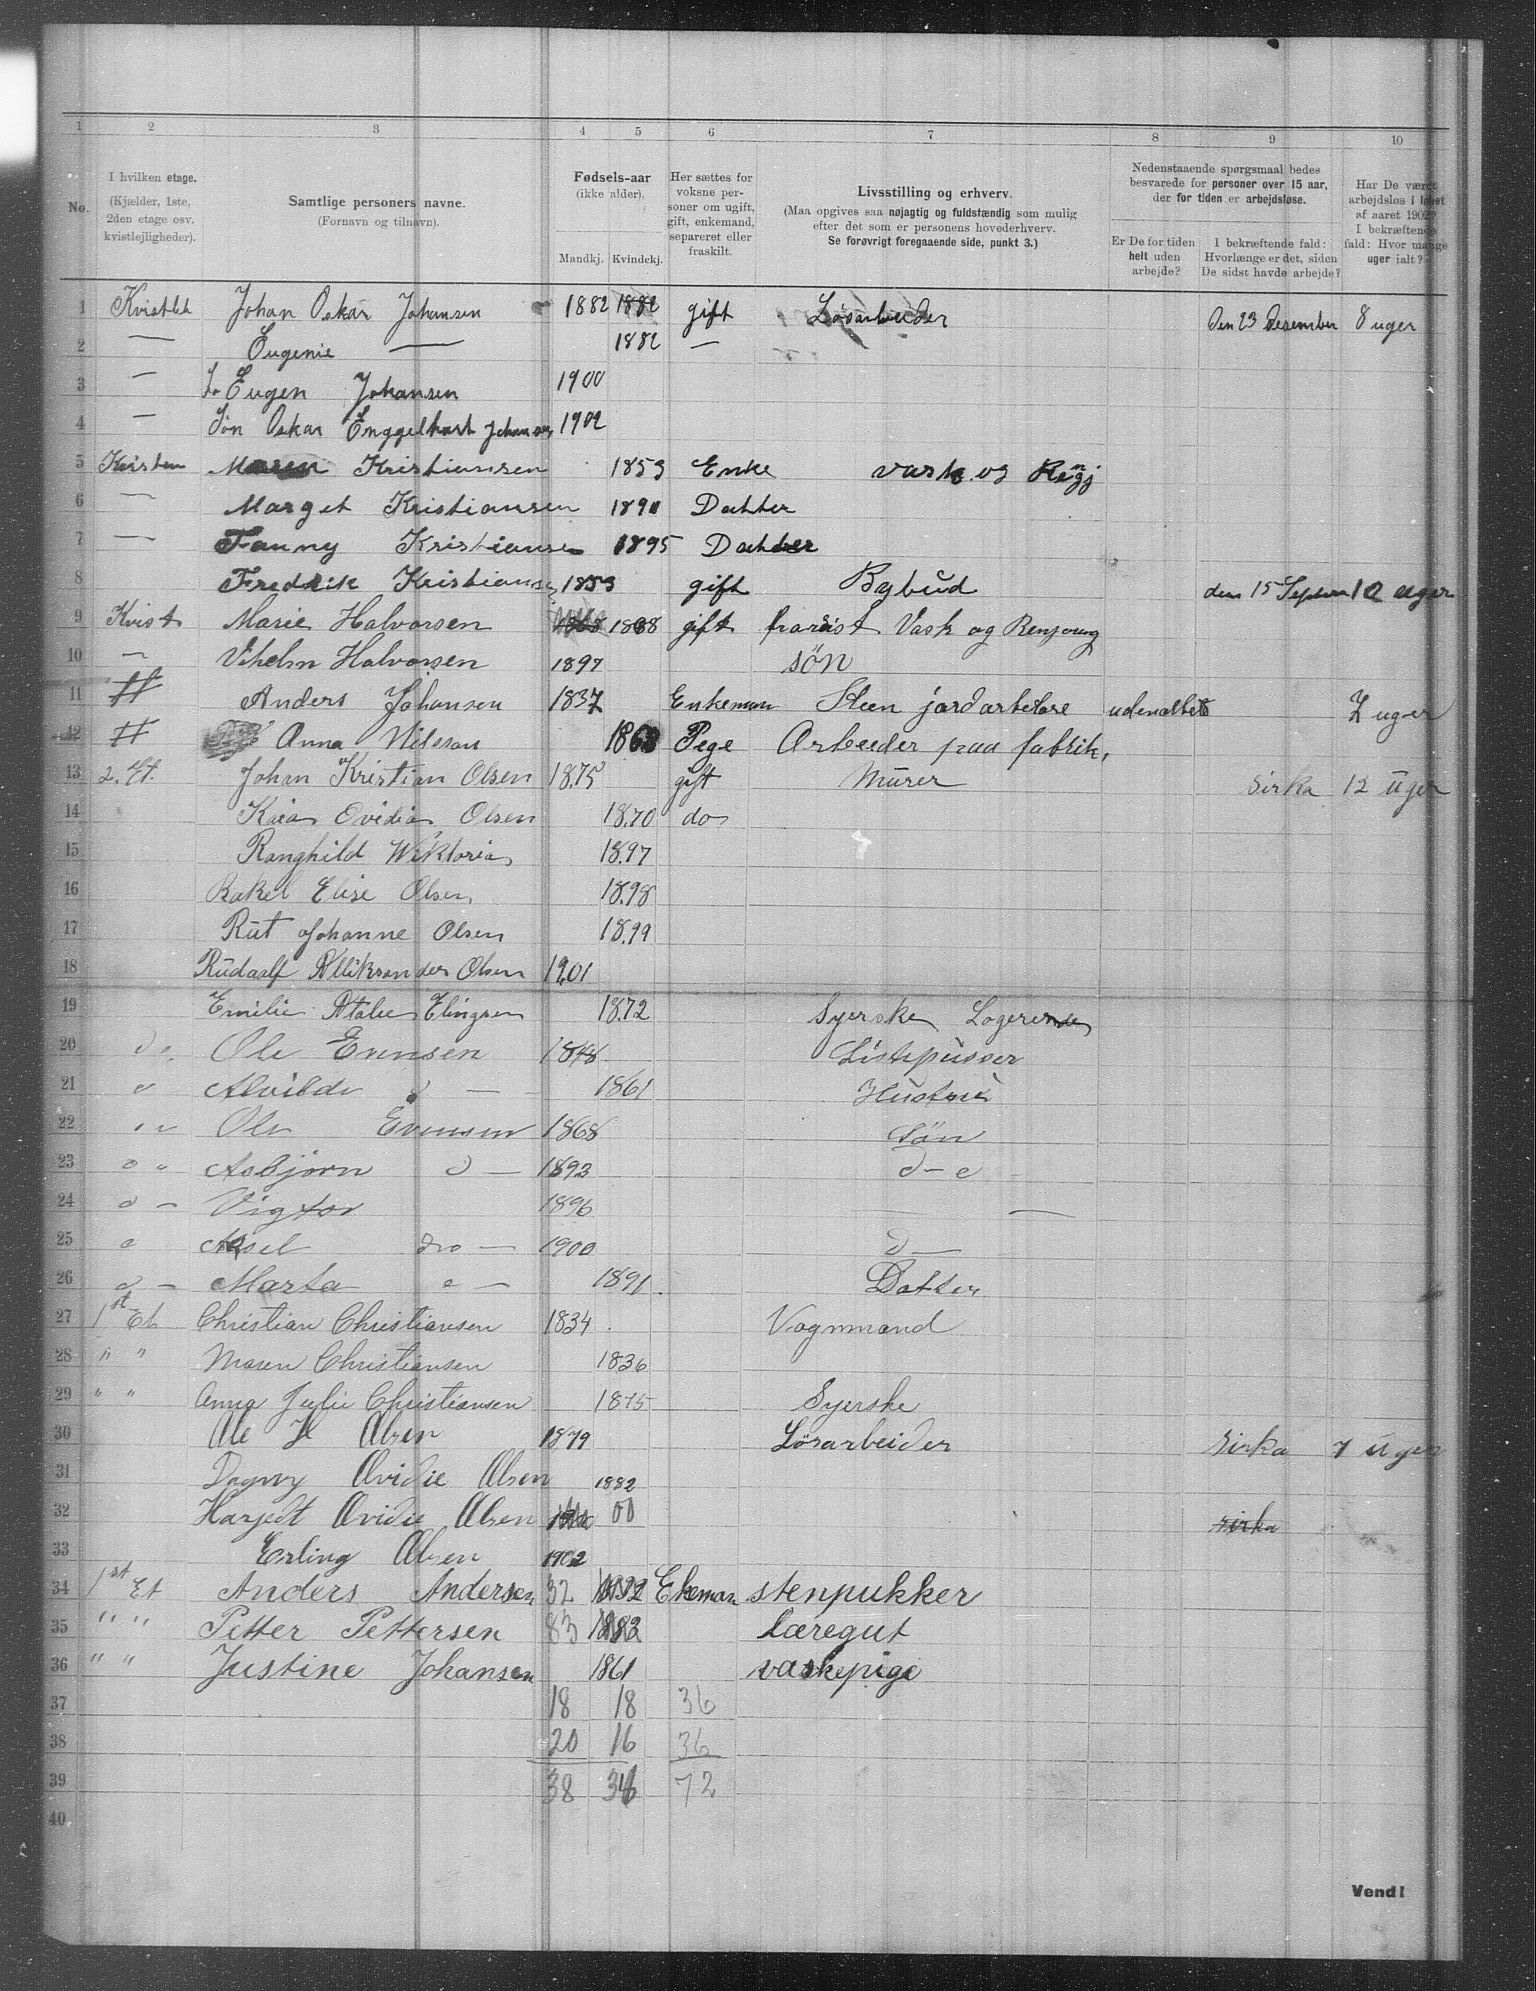 1 2 3 4 5 6 7 8 9 10
No.
I hvilken etage.
(Kjælder, 1ste,
2den etage osv.
kvistlejligheder).
Samtlige personers navne.
(Fornavn og tilnavn).
Fødsels-aar
(ikke alder).
Mandkj. Kvindekj.
Her sættes for
voksne per-
soner om ugift,
gift, enkemand,
separeret eller
fraskilt.
Livsstilling og erhverv.
(Maa opgives saa nøjagtig og fuldstændig som mulig
efter det som er personens hovederhverv.
Se forøvrigt foregaaende side, punkt 3.)
Nedenstaaende spørgsmaal bedes
besvarede for personer over 15 aar,
der for tiden er arbejdsløse.
Er De for tiden
helt uden
arbejde?
I bekræftende fald:
Hvorlænge er det, siden
De sidst havde arbejde?
Har De været
arbejdsløs i løbet
af aaret 1902?
I bekræftende
fald: Hvor mange
uger ialt?
1 Johan Oskar Johansen 1882 1882 gift Løsarbeider Den 23 Desember 8 uger
2 — Eugenie — 1882 —
3 — Eugen Johansen 1900
4 — Søn Oskar Enggelhart Johansen 1902
5 Maren Kristiansen 1853 Enke vask og Rengj
6 — Marget Kristiansen 1890 Datter
7 — Fanny Kristiansen 1895 Datter
8 Fredrik Kristiansen 1853 gift Bybud den 15 Septem 10 uger
9 Kvist Marie Halvorsen 1868 1868 gift Vask og Renjøring
10 — Vihelm Halvorsen 1897 søn
11 Anders Johansen 1837 Enkeman Steen jordarbeiare 7 uger
12 Anna Nilsson 1868 Pege Arbeider paa fabrik.
13 2. Et. Johan Kristian Olsen 1875 gift Murer sirka 12 uger
14 Kaia Ovidia Olsen 18.70 do
15 Ranghild Wiktoria 18.97
16 Rakel Elise Olsen 18.98
17 Rut Johanne Olsen 18.99
18 Rudaalf Alliksander Olsen 1901
19 Emilie Atalie Elingsen 18.72 Syerske Logerende
20 do. Ole Evensen 1848 Listepusser
21 Alvilde — 1861 Hustru
22 Ole Evensen 1868 Søn
23 Asbjørn d — 1893
24 Vigtor 1896 —
25 Aksel do — 1900 d —
26 Marta — 1891 Datter
27 1st Et Christian Christiansen 1834 Vognmand
28 " " Maren Christiansen 1836
29 " " Anna Julie Christiansen 1875 Syerske
30 Ole H Olsen 1879 Løsarbeider sirka 7 uger
31 Dagny Ovidie Olsen 1882
32 Harjedt Ovidie Olsen 00 sirka
33 Erling Olsen 1902
34 1st Et Anders Andersen 32 1832 Ekeman stenpukker
35 " " Petter Pettersen 83 1883 læregut
36 " " Justine Johansen 1861 vaskepige
37 18 18 36
38 20 16 36
39 38 34 72
40
Vend!